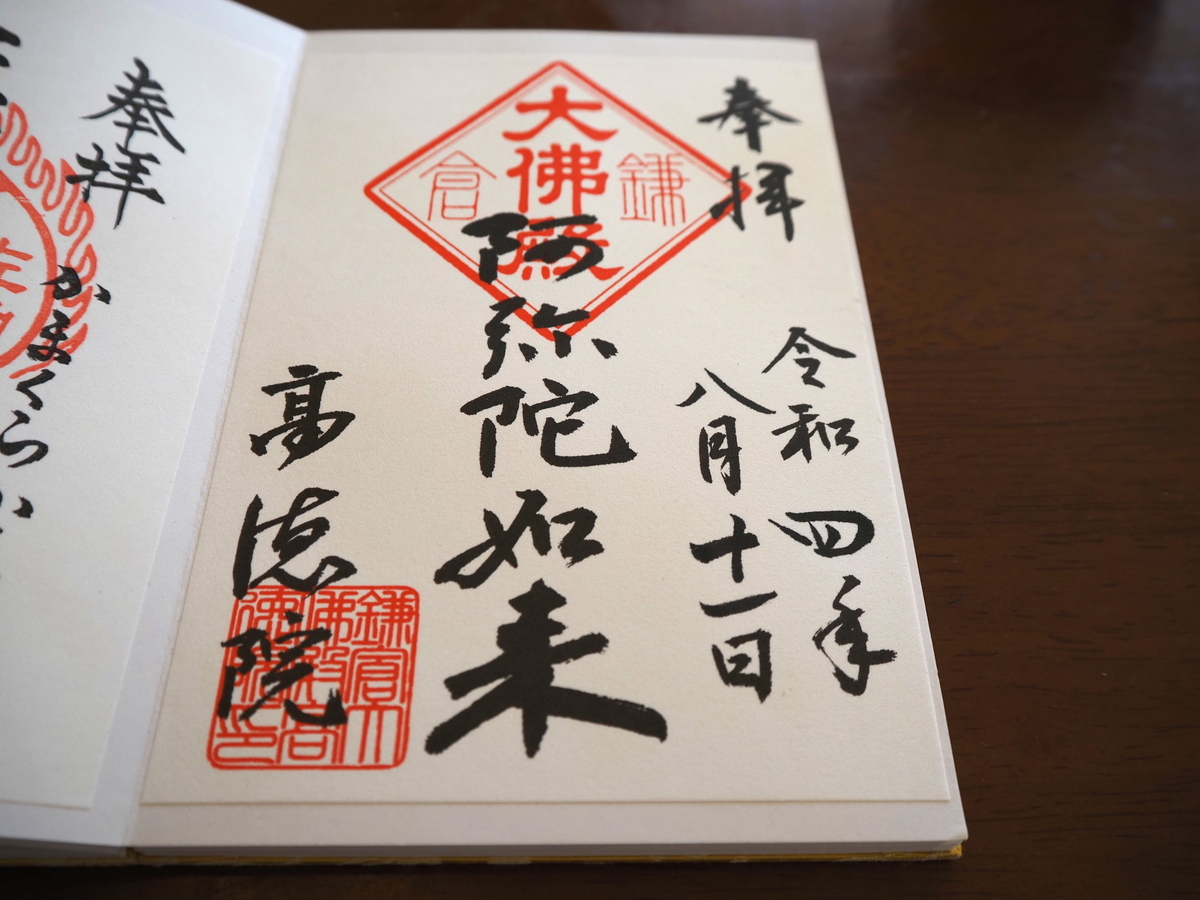 奉拝
令和四年
八月十一日
鎌倉
大佛殿
阿弥陀如来
高徳院
鎌倉大
佛殿高
徳院印
奉拝
かまくら